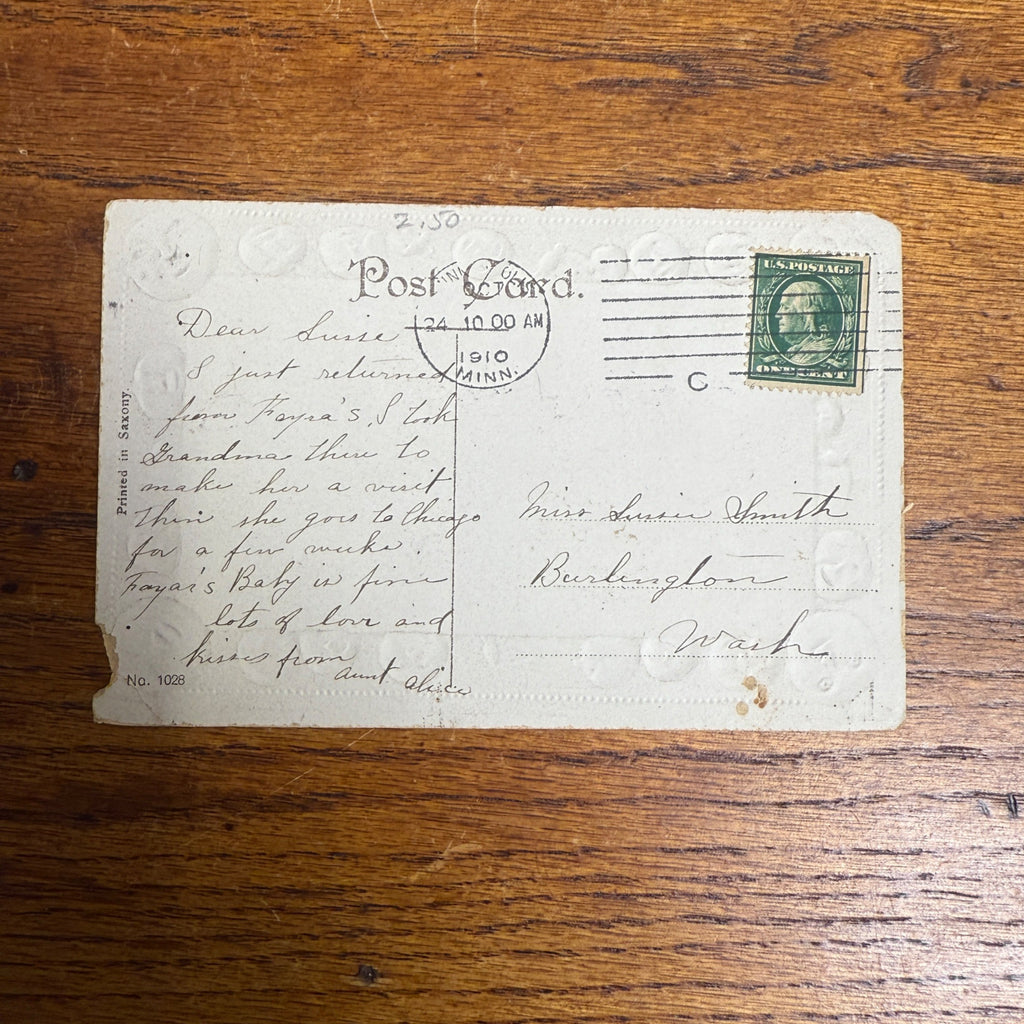 2.50
Post Card.
OCT
24 10 00 AM
1910
MINN.
C
U.S. POSTAGE
ONE CENT
Dear Susie
I just returned
from Fayra's, I took
Grandma there to
make her a visit
then she goes to Chicago
for a few weeks.
Fayar's Baby is fine
lots of love and
kisses from
Aunt Alice
Miss Susie Smith
Burlington
Wash
Printed in Saxony.
No. 1028